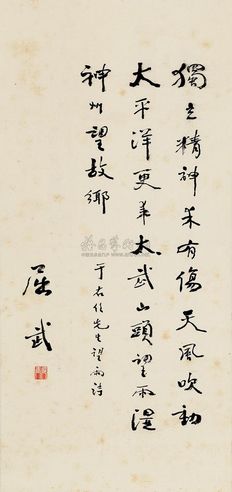 獨立精神未有傷天風吹動
太平洋更來太武山頭望雨濕
神州望故鄉
于右任先生望雨詩
屈武